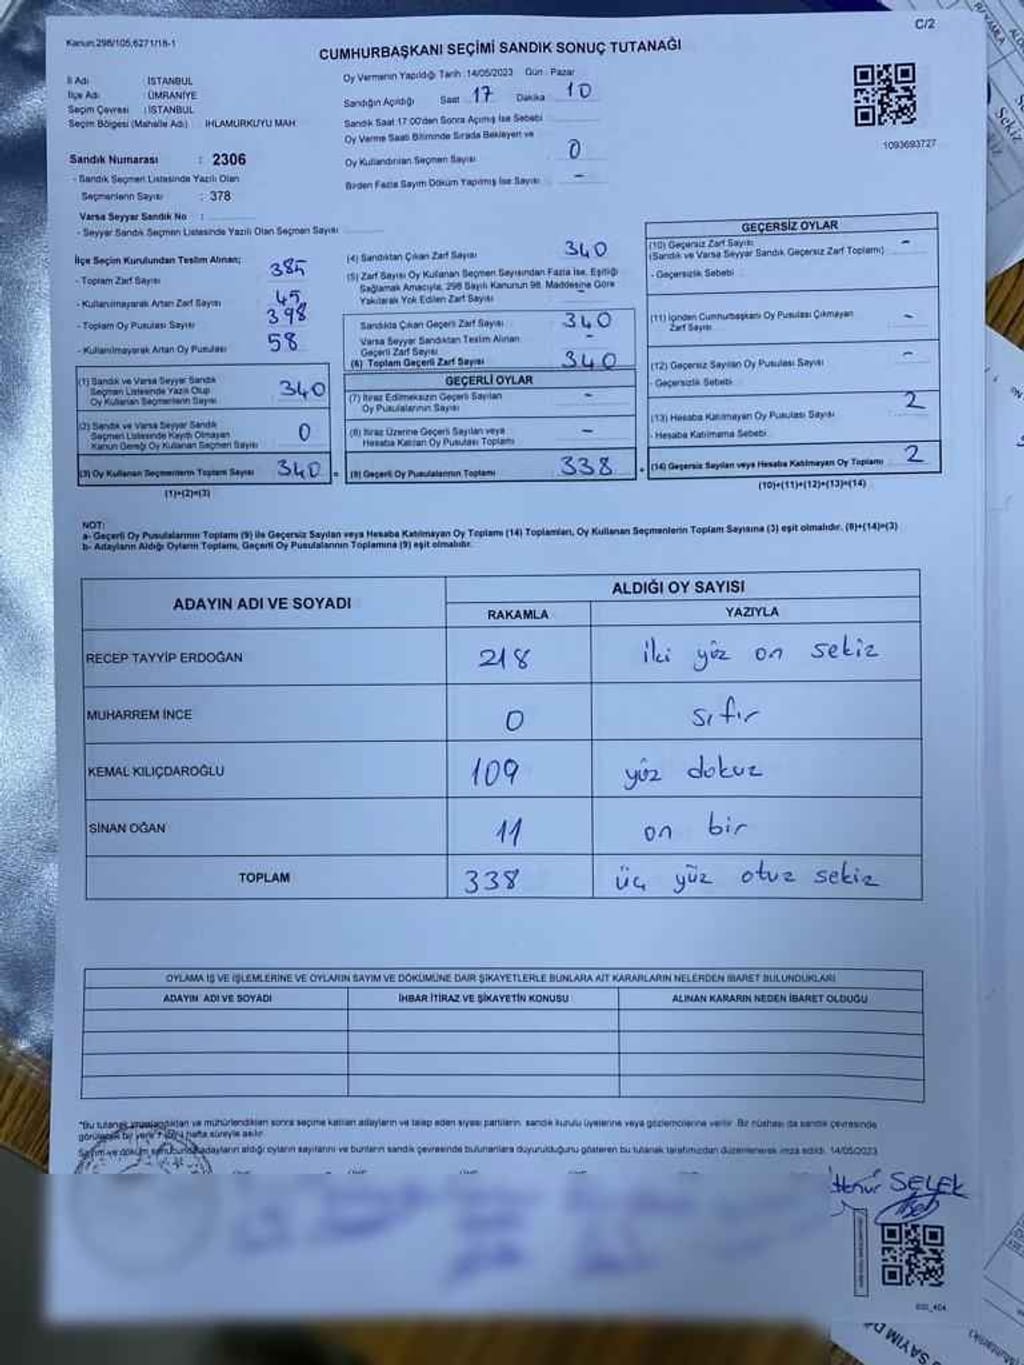 C/2
Kanun:298/105,6271/18-1
CUMHURBAŞKANI SEÇİMİ SANDIK SONUÇ TUTANAĞI
İl Adı : İSTANBUL
İlçe Adı : ÜMRANİYE
Seçim Çevresi : İSTANBUL
Seçim Bölgesi (Mahalle Adı) : IHLAMURKUYU MAH.
Oy Vermenin Yapıldığı Tarih :14/05/2023 Gün : Pazar
Sandığın Açıldığı Saat 17 Dakika 10
Sandık Saat 17:00'den Sonra Açılmış İse Sebebi
Oy Verme Saati Bitiminde Sırada Bekleyen ve
Oy Kullandırılan Seçmen Sayısı 0
Birden Fazla Sayım Döküm Yapılmış İse Sayısı -
1093693727
Sandık Numarası : 2306
- Sandık Seçmen Listesinde Yazılı Olan
Seçmenlerin Sayısı : 378
Varsa Seyyar Sandık No :
- Seyyar Sandık Seçmen Listesinde Yazılı Olan Seçmen Sayısı
İlçe Seçim Kurulundan Teslim Alınan;
- Toplam Zarf Sayısı 385
- Kullanılmayarak Artan Zarf Sayısı 45
- Toplam Oy Pusulası Sayısı 398
- Kullanılmayarak Artan Oy Pusulası 58
(1) Sandık ve Varsa Seyyar Sandık
Seçmen Listesinde Yazılı Olup
Oy Kullanan Seçmenlerin Sayısı 340
(2) Sandık ve Varsa Seyyar Sandık
Seçmen Listesinde Kayıtlı Olmayan
Kanun Gereği Oy Kullanan Seçmen Sayısı 0
(3) Oy Kullanan Seçmenlerin Toplam Sayısı 340 =
(1)+(2)=(3)
(4) Sandıktan Çıkan Zarf Sayısı 340
(5) Zarf Sayısı Oy Kullanan Seçmen Sayısından Fazla İse, Eşitliği
Sağlamak Amacıyla, 298 Sayılı Kanunun 98. Maddesine Göre
Yakılarak Yok Edilen Zarf Sayısı
Sandıkta Çıkan Geçerli Zarf Sayısı 340
Varsa Seyyar Sandıktan Teslim Alınan
Geçerli Zarf Sayısı -
(6) Toplam Geçerli Zarf Sayısı 340
GEÇERLİ OYLAR
(7) İtiraz Edilmeksizin Geçerli Sayılan
Oy Pusulalarının Sayısı -
(8) İtiraz Üzerine Geçerli Sayılan veya
Hesaba Katılan Oy Pusulası Toplamı -
(9) Geçerli Oy Pusulalarının Toplamı 338 +
GEÇERSİZ OYLAR
(10) Geçersiz Zarf Sayısı
(Sandık ve Varsa Seyyar Sandık Geçersiz Zarf Toplamı) -
- Geçersizlik Sebebi
(11) İçinden Cumhurbaşkanı Oy Pusulası Çıkmayan
Zarf Sayısı -
(12) Geçersiz Sayılan Oy Pusulası Sayısı -
- Geçersizlik Sebebi
(13) Hesaba Katılmayan Oy Pusulası Sayısı 2
- Hesaba Katılmama Sebebi
(14) Geçersiz Sayılan veya Hesaba Katılmayan Oy Toplamı 2
(10)+(11)+(12)+(13)=(14)
NOT:
a- Geçerli Oy Pusulalarının Toplamı (9) ile Geçersiz Sayılan veya Hesaba Katılmayan Oy Toplamı (14) Toplamları, Oy Kullanan Seçmenlerin Toplam Sayısına (3) eşit olmalıdır. (9)+(14)=(3)
b- Adayların Aldığı Oyların Toplamı, Geçerli Oy Pusulalarının Toplamına (9) eşit olmalıdır.
ADAYIN ADI VE SOYADI
ALDIĞI OY SAYISI
RAKAMLA YAZIYLA
RECEP TAYYİP ERDOĞAN 218 iki yüz on sekiz
MUHARREM İNCE 0 sıfır
KEMAL KILIÇDAROĞLU 109 yüz dokuz
SİNAN OĞAN 11 on bir
TOPLAM 338 üç yüz otuz sekiz
OYLAMA İŞ VE İŞLEMLERİNE VE OYLARIN SAYIM VE DÖKÜMÜNE DAİR ŞİKAYETLERLE BUNLARA AİT KARARLARIN NELERDEN İBARET BULUNDUKLARI
ADAYIN ADI VE SOYADI İHBAR İTİRAZ VE ŞİKAYETİN KONUSU ALINAN KARARIN NEDEN İBARET OLDUĞU
*Bu tutanak imzalandıktan ve mühürlendikten sonra seçime katılan adayların ve talep eden siyasi partilerin, sandık kurulu üyelerine veya gözlemcilerine verilir. Bir nüshası da sandık çevresinde
görülecek bir yere 1 (bir) hafta süreyle asılır.
Sayım ve döküm sonucunda adayların aldığı oyların sayılarını ve bunların sandık çevresinde bulunanlara duyurulduğunu gösteren bu tutanak tarafımızdan düzenlenerek imza edildi. 14/05/2023
SELEK
SAYIM D